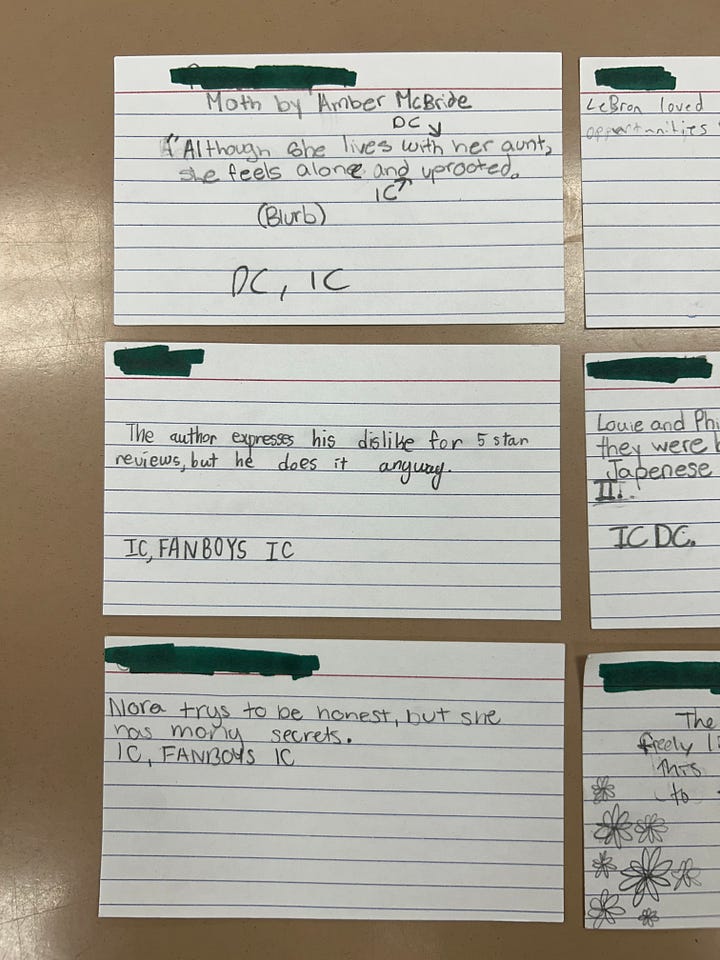 Moth by Amber McBride
DC
"Although she lives with her aunt,
she feels alone and uprooted.
IC
(Blurb)
DC, IC
LeBron loved
opportunities
The author expresses his dislike for 5 star
reviews, but he does it anyway.
IC, FANBOYS IC
Louie and Phi
they were b
Japenese
II.
IC DC.
Nora trys to be honest, but she
has many secrets.
IC, FANBOYS IC
The
freely li
this
to